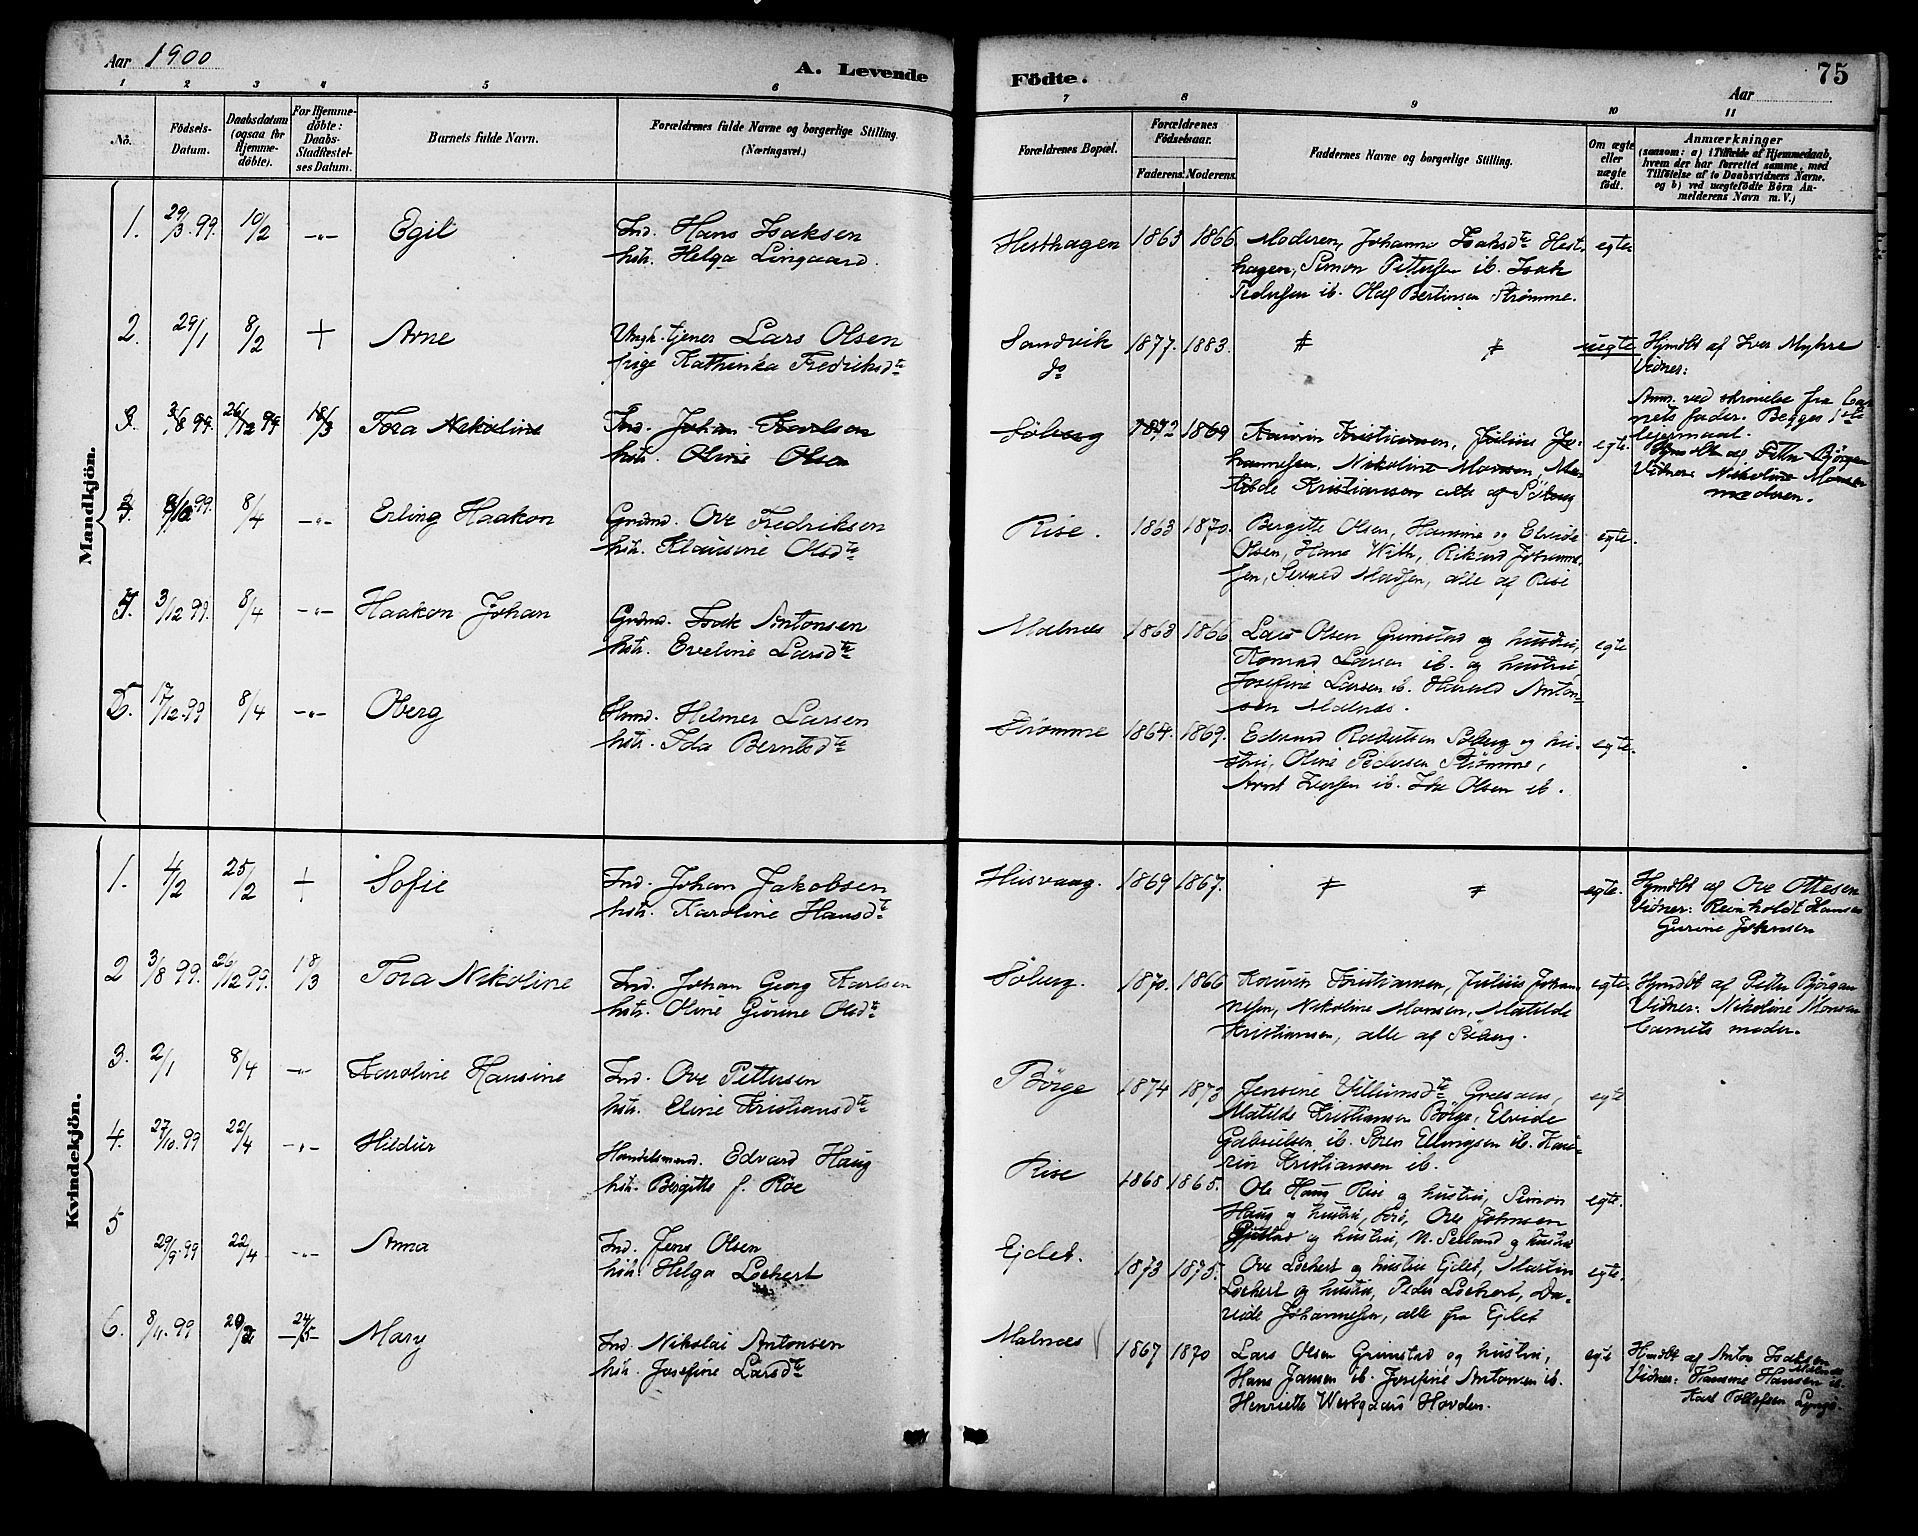 Aar 1900
A. Levende
Födte.
75
Aar
1 2 3 4 5 6 7 8 9 10 11
No.
Födsels-
Datum.
Daabsdatum
(ogsaa for
Hjemme-
döbte).
For Hjemme-
döbte:
Daabs-
Stadfæstel-
ses Datum.
Barnets fulde Navn.
Forældrenes fulde Navne og borgerlige Stilling.
(Næringsvei.)
Forældrenes Bopæl.
Forældrenes
Födselsaar.
Faderens. Moderens.
Faddernes Navne og borgerlige Stilling.
Om ægte
eller
uægte
født.
Anmærkninger
(saasom: a) i Tilfælde af Hjemmedaab,
hvem der har forrettet samme, med
Tilföielse af to Daabsvidners Navne.
og b) ved uægtefödte Börn An-
melderens Navn m. V.)
Mandkjön.
1. 29/3 99. 10/2 -"- Egil
Ind. Hans Isaksen
hstr. Helga Lingaard.
Hesthagen 1863 1866.
Moderen, Johanna Isaksdtr Hest-
hagen, Simon Pettersen ib. Isak
Pedersen ib. Olaf Bertinsen Strømme.
egte
2. 29/1 8/2 + Arne
Ungk. tjener Lars Olsen
pige Kathinka Fredriksdtr
Sandvik
do
1877. 1883.
uegte
Hjmdbt af Iver Myhre
Vidner:
Anm. ved skrivelse fra Bar-
nets fader. Begges 1ste
leiermaal.
3. 3/8 99. 26/12 99. 18/3 Tora Nikoline
Ind. Johan Karlsen
hstr. Oline Olsen
Søberg 1872 1869
Kaurin Kristiansen, Julius Jo-
hannesen, Nikoline Monsen, Ma-
tilde Kristiansen alle af Søberg
egte.
Hjmdbt af Petter Bjørgan
Vidner: Nikoline Monsen
moderen.
3. 8/12 99. 8/4 -"- Erling Haakon
Grdmd. Ove Fredriksen
hstr. Klausine Olsdtr
Rise. 1863 1870.
Bergitte Olsen, Hamine og Elvide
Olsen, Hans With, Rikard Johanne-
sen, Sivald Madsen, alle af Rise
egte.
4. 3/12 99. 8/4 -"- Haakon Johan
Grdmd. Isak Antonsen
hstr. Eveline Larsdtr
Malnes 1863 1866.
Lars Olsen Grimstad og hustru,
Konrad Larsen ib. og hustru
Josefine Larsen ib. Harald Anton-
sen Malnes.
egte
5. 17/12 99 8/4 -"- Oberg
Hmd. Helmer Larsen
hstr. Ida Berntsdtr
Strømme 1864. 1869.
Edvard Søberg og hu-
stru, Oline Pedersen Strømme,
Arnt Iversen ib. Ida Olsen ib.
egte.
Kvindekjön.
1. 4/2 25/2 + Sofie
Ind. Johan Jakobsen
hstr. Karoline Hansdtr
Husvaag. 1869 1867.
egte.
Hjmdbt af Ove Ottesen
Vidner: Reinholdt Hansen
Gurine Johnsen
2 3/8 99. 26/12 99. 18/3 Tora Nikoline
Ind. Johan Georg Karlsen
hstr. Oline Gurine Olsdtr
Søberg. 1870. 1866
Kaurin Kristiansen, Julius Johan-
nesen, Nikoline Monsen, Matilde
Kristiansen, alle af Søberg.
egte.
Hjmdbt af Peter Bjørgan
Vidner: Nikoline Monsen
barnets moder.
3. 2/1 8/4 -"- Karoline Hansine
Ind. Ove Pettersen
hstr. Eline Kristiansdtr
Børge 1874 1873
Jensine Villumsdtr
Matilde Kristiansen Børge, Elvide
Gabrielsen ib. Søren Ellingsen ib. Kau-
rin Kristiansen ib.
egte
4. 27/10 99 22/4 -"- Hildur
Handelsmand. Edvard Haug
hstr. Bergitte f. Røe
Rise 1868 1865.
Ole Haug Rise og hustru, Simon
Haug og hustru, Ove Johnsen
og hustru, N. Selland og hustru
egte.
5 29/9 99 22/4 -"- Anna
Ind. Jens Olsen
hstr. Helga Lockert
Ejdet. 1873 1875.
Ove Lockert og hustru Ejdet, Martin
Lockert og hustru, Peder Lockert, Da-
vide Johannesen, alle fra Ejdet
egte.
6. 8/11 99 24/5 Mary
Ind. Nikolai Antonsen
hstr. Josefine Larsdtr
Malnes 1867 1870
Lars Olsen Grimstad og hustru,
Hans Jansen ib. Josefine Antonsen ib.
Henriette Westgaard Hovden.
egte
Hmdbt af Anton Isaksen
Vidner: Hansine Hansen ib.
Karl Tollefsen